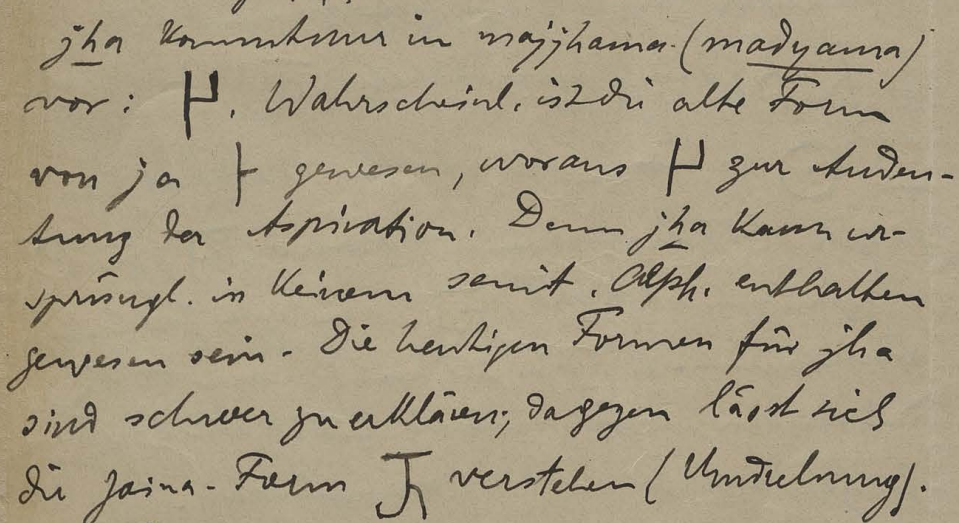 jha kommt nur in majjhama (madyama)
vor: 𑀛. Wahrscheinl. ist die alte Form
von ja ⊢ gewesen, woraus 𑀛 zur Andeu-
tung der Aspiration. Denn jha kann ur-
sprüngl. in keinem semit. Alph. enthalten
gewesen sein. Die heutigen Formen für jha
sind schwer zu erklären; dagegen lässt sich
die Jaina-Form verstehen (Umdrehnung).